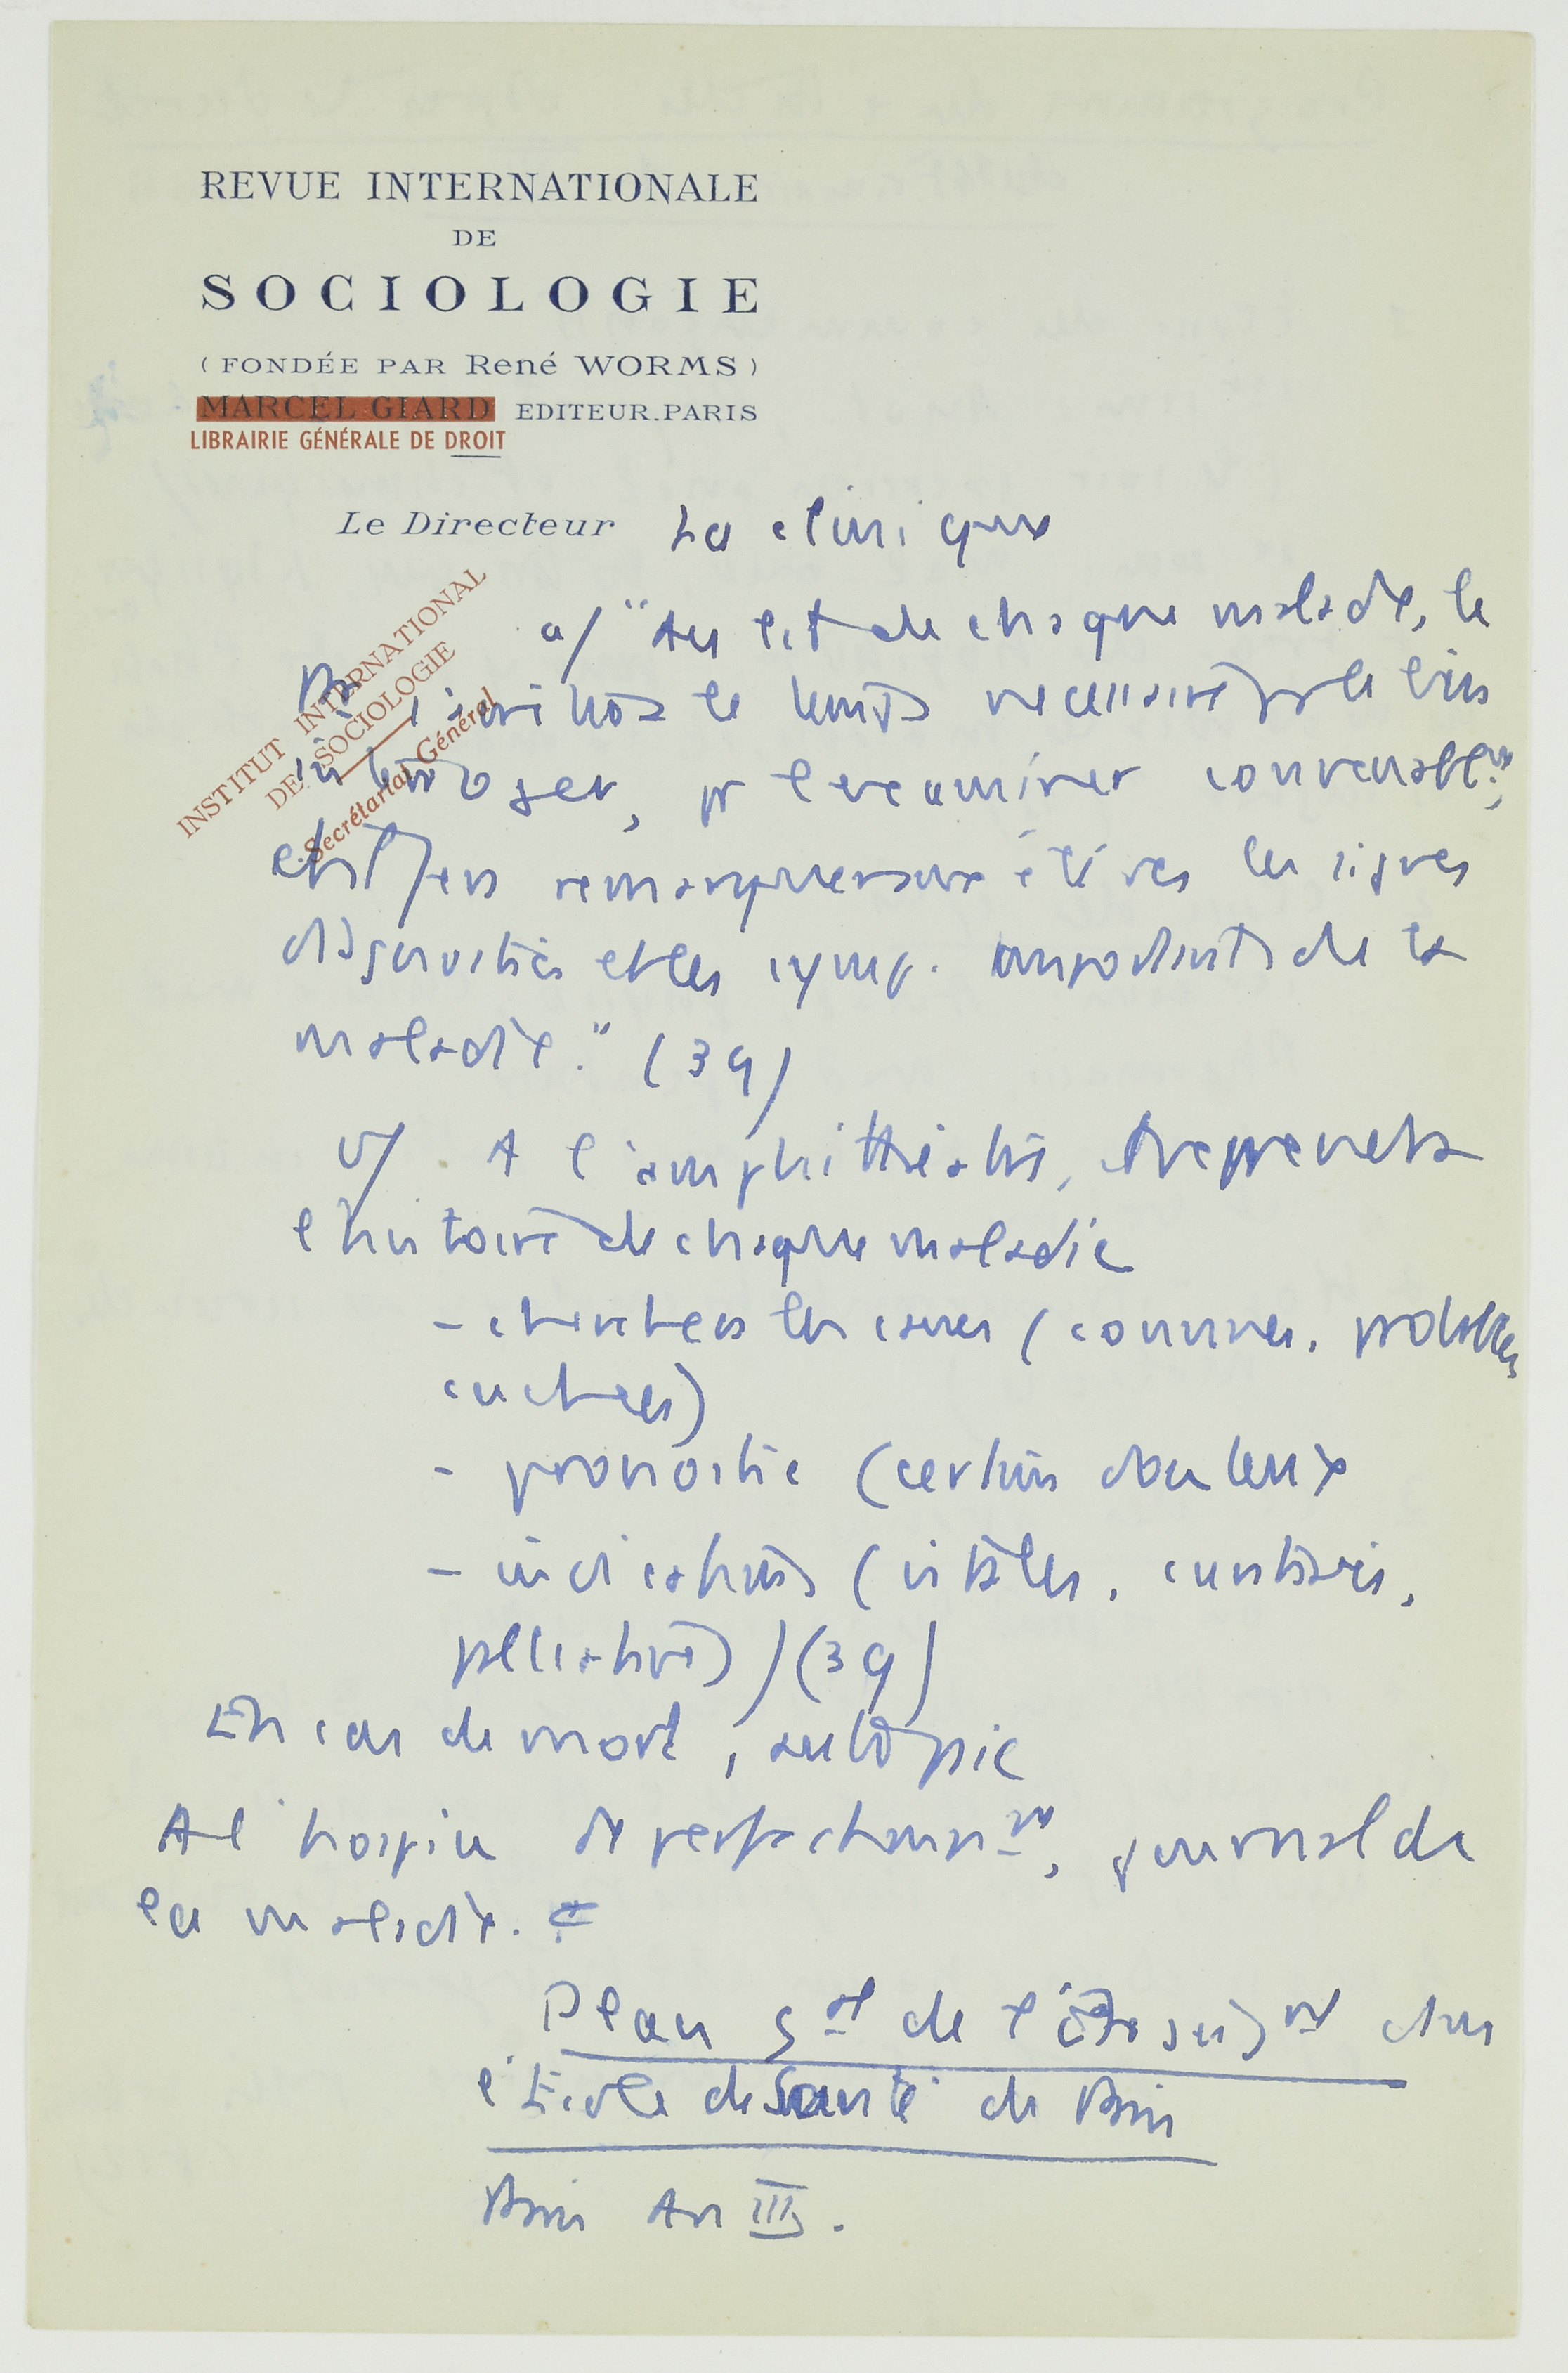 REVUE INTERNATIONALE
DE
SOCIOLOGIE
(FONDÉE PAR René WORMS)
MARCEL GIARD EDITEUR.PARIS
LIBRAIRIE GÉNÉRALE DE DROIT
Le Directeur
INSTITUT INTERNATIONAL
DE SOCIOLOGIE
Secrétariat Général
La clinique
a/ "Au lit de chaque malade, le
Pr s'arrêtera le temps nécessaire pr le bien
interroger, pr l'examiner convenablemt,
et il fera remarquer aux élèves les signes
diagnostics et les symp. importants de la
maladie." (39)
b/ A l'amphithéâtre, il reprendra
l'histoire de chaque maladie
- cherchera les causes (connues, probables,
cachées)
- pronostic (certain douteux
- indications (vitales, curatives,
palliatives) / (39)
En cas de mort, autopsie
A l'hospice de perfectionnt, journal de
la maladie.
Plan gal de l'enseigt dans
l'École de Santé de Paris
Paris An III.